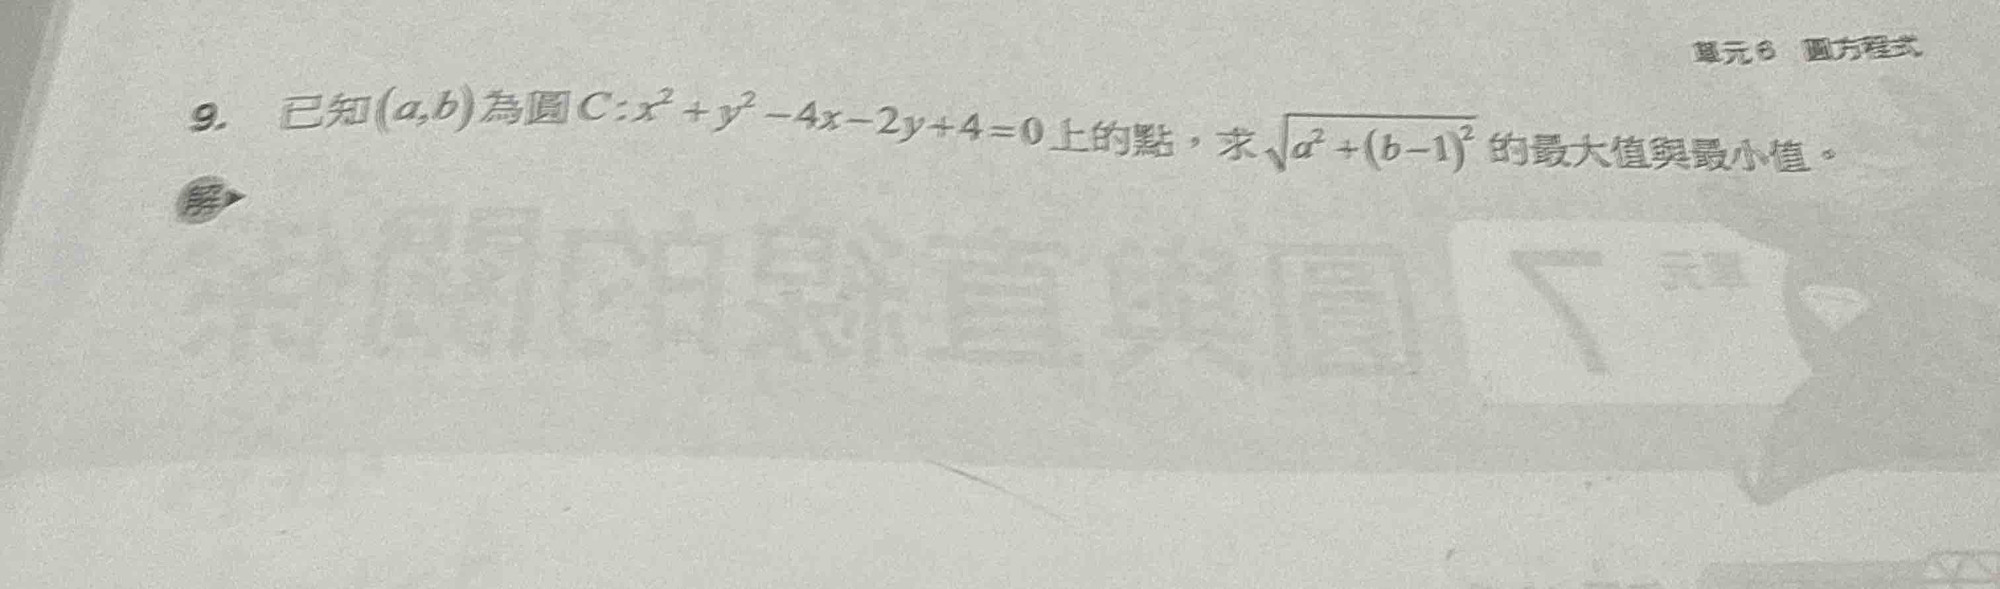 單元6 圓方程式
9. 已知(a,b)為圓C:x²+y²-4x-2y+4=0上的點,求√(a²+(b-1)²)的最大值與最小值。
解
圓與直線的關係 7 單元